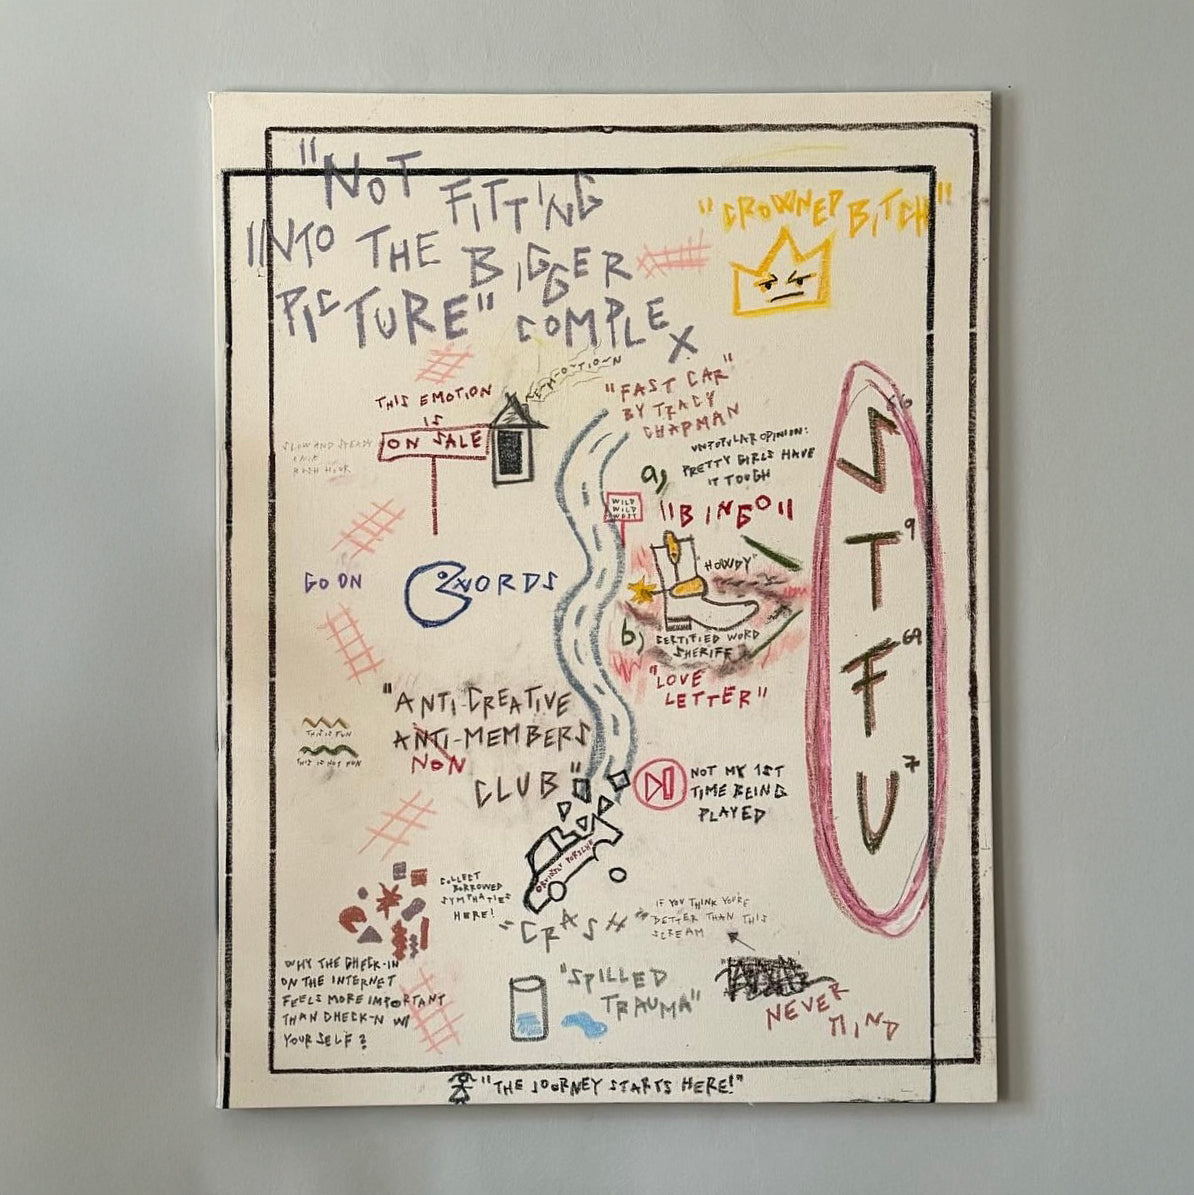 "NOT
FITTING
INTO THE BIGGER
PICTURE" COMPLEX
"CROWNED BITCH"
EMOTION
THIS EMOTION
IS
ON SALE
SLOW AND STEADY
RUSH HOUR
"FAST CAR"
BY TRACY
CHAPMAN
UNPOPULAR OPINION:
a) PRETTY GIRLS HAVE
IT TOUGH
WILD
WILD
WEST
"BINGO"
"HOWDY"
b) CERTIFIED WORD
SHERIFF
"LOVE
LETTER"
GO ON
WORDS
S 66
T 9
F 69
U 7
"ANTI-CREATIVE
ANTI-MEMBERS
NON
CLUB"
THIS IS FUN
THIS IS NOT FUN
NOT MY 1ST
TIME BEING
PLAYED
PORSCHE
COLLECT
BORROWED
SYMPHATIES
HERE!
"CRASH"
IF YOU THINK YOU'RE
BETTER THAN THIS
SCREAM
WHY THE CHECK-IN
ON THE INTERNET
FEELS MORE IMPORTANT
THAN CHECK-N W/
YOUR SELF?
"SPILLED
TRAUMA"
NEVER
MIND
"THE JOURNEY STARTS HERE!"